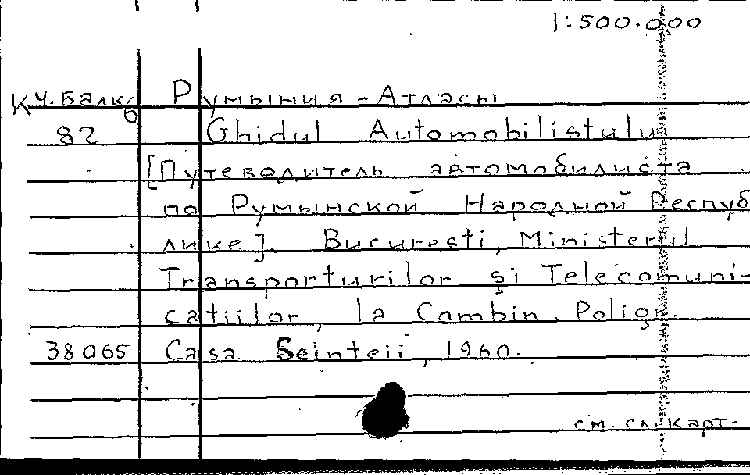 1:500.000
КЧ.Балк. Румыния-Атласы
6
82 Ghidul Automobilistului
[Путеводитель автомобилиста
по Румынской Народной Респуб
лике]. Bucuresti, Ministerul
Transporturilor şi Telecomuni-
catiilor, la Combin. Poligr.
38065 Casa Scinteii, 1960.
см. сл. карт.